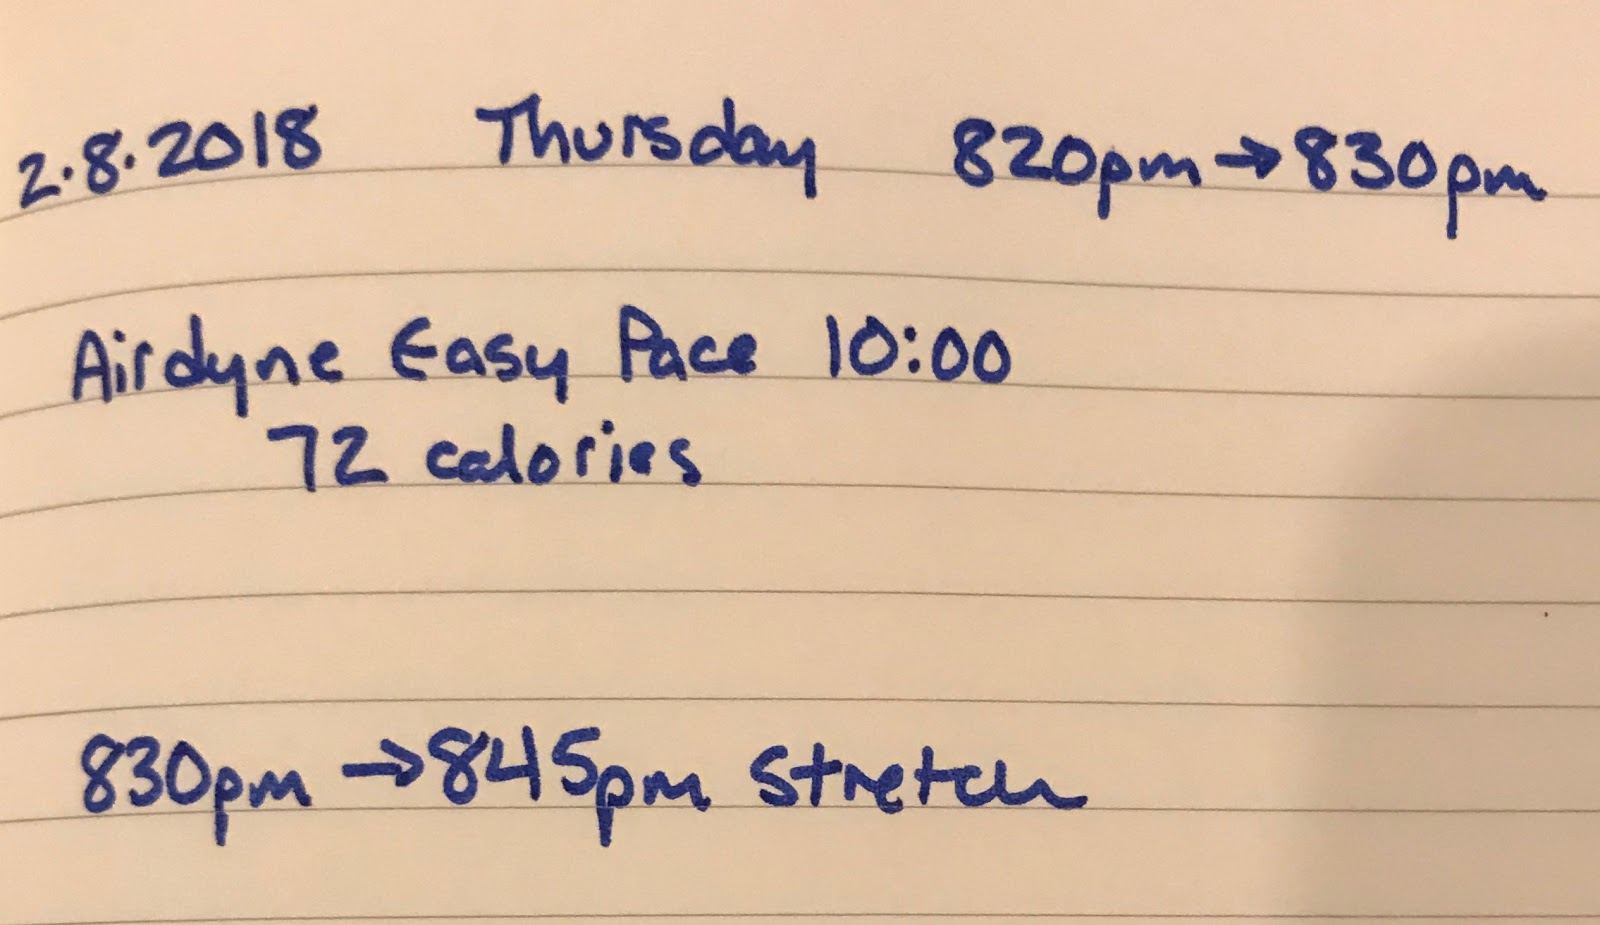 2.8.2018 Thursday 820pm → 830pm
Airdyne Easy Pace 10:00
72 calories
830pm → 845pm Stretch